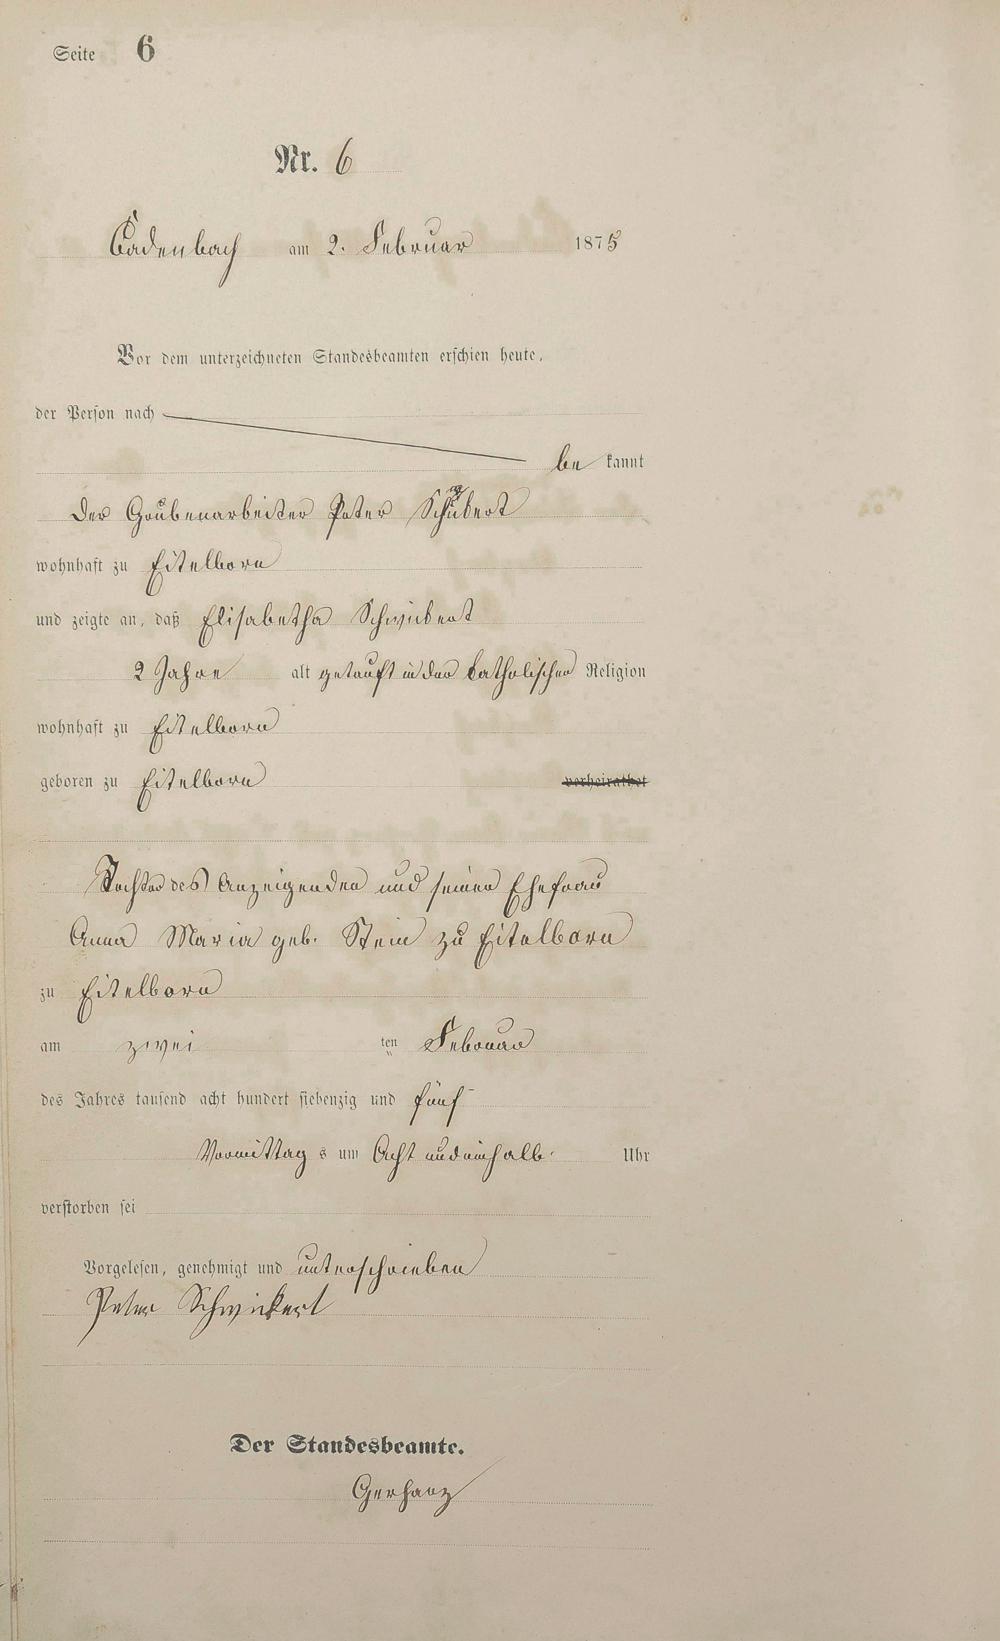 Seite 6
Nr. 6
Cadenbach am 2. Februar 1875
Vor dem unterzeichneten Standesbeamten erschien heute,
der Person nach
be kannt
der Grubenarbeiter Peter
wohnhaft zu Eitelborn
und zeigte an, daß Elisabetha Schwikert
2 Jahre alt getauft in der katholischen Religion
wohnhaft zu Eitelborn
geboren zu Eitelborn verheirathet
Tochter des Anzeigenden und seiner Ehefrau
Anna Maria geb. Stein zu Eitelborn
zu Eitelborn
am zwei ten Februar
des Jahres tausend acht hundert siebenzig und fünf
Vormittag s um Acht undeinhalb Uhr
verstorben sei
Vorgelesen, genehmigt und unterschrieben
Peter Schwickert
Der Standesbeamte.
Gerharz